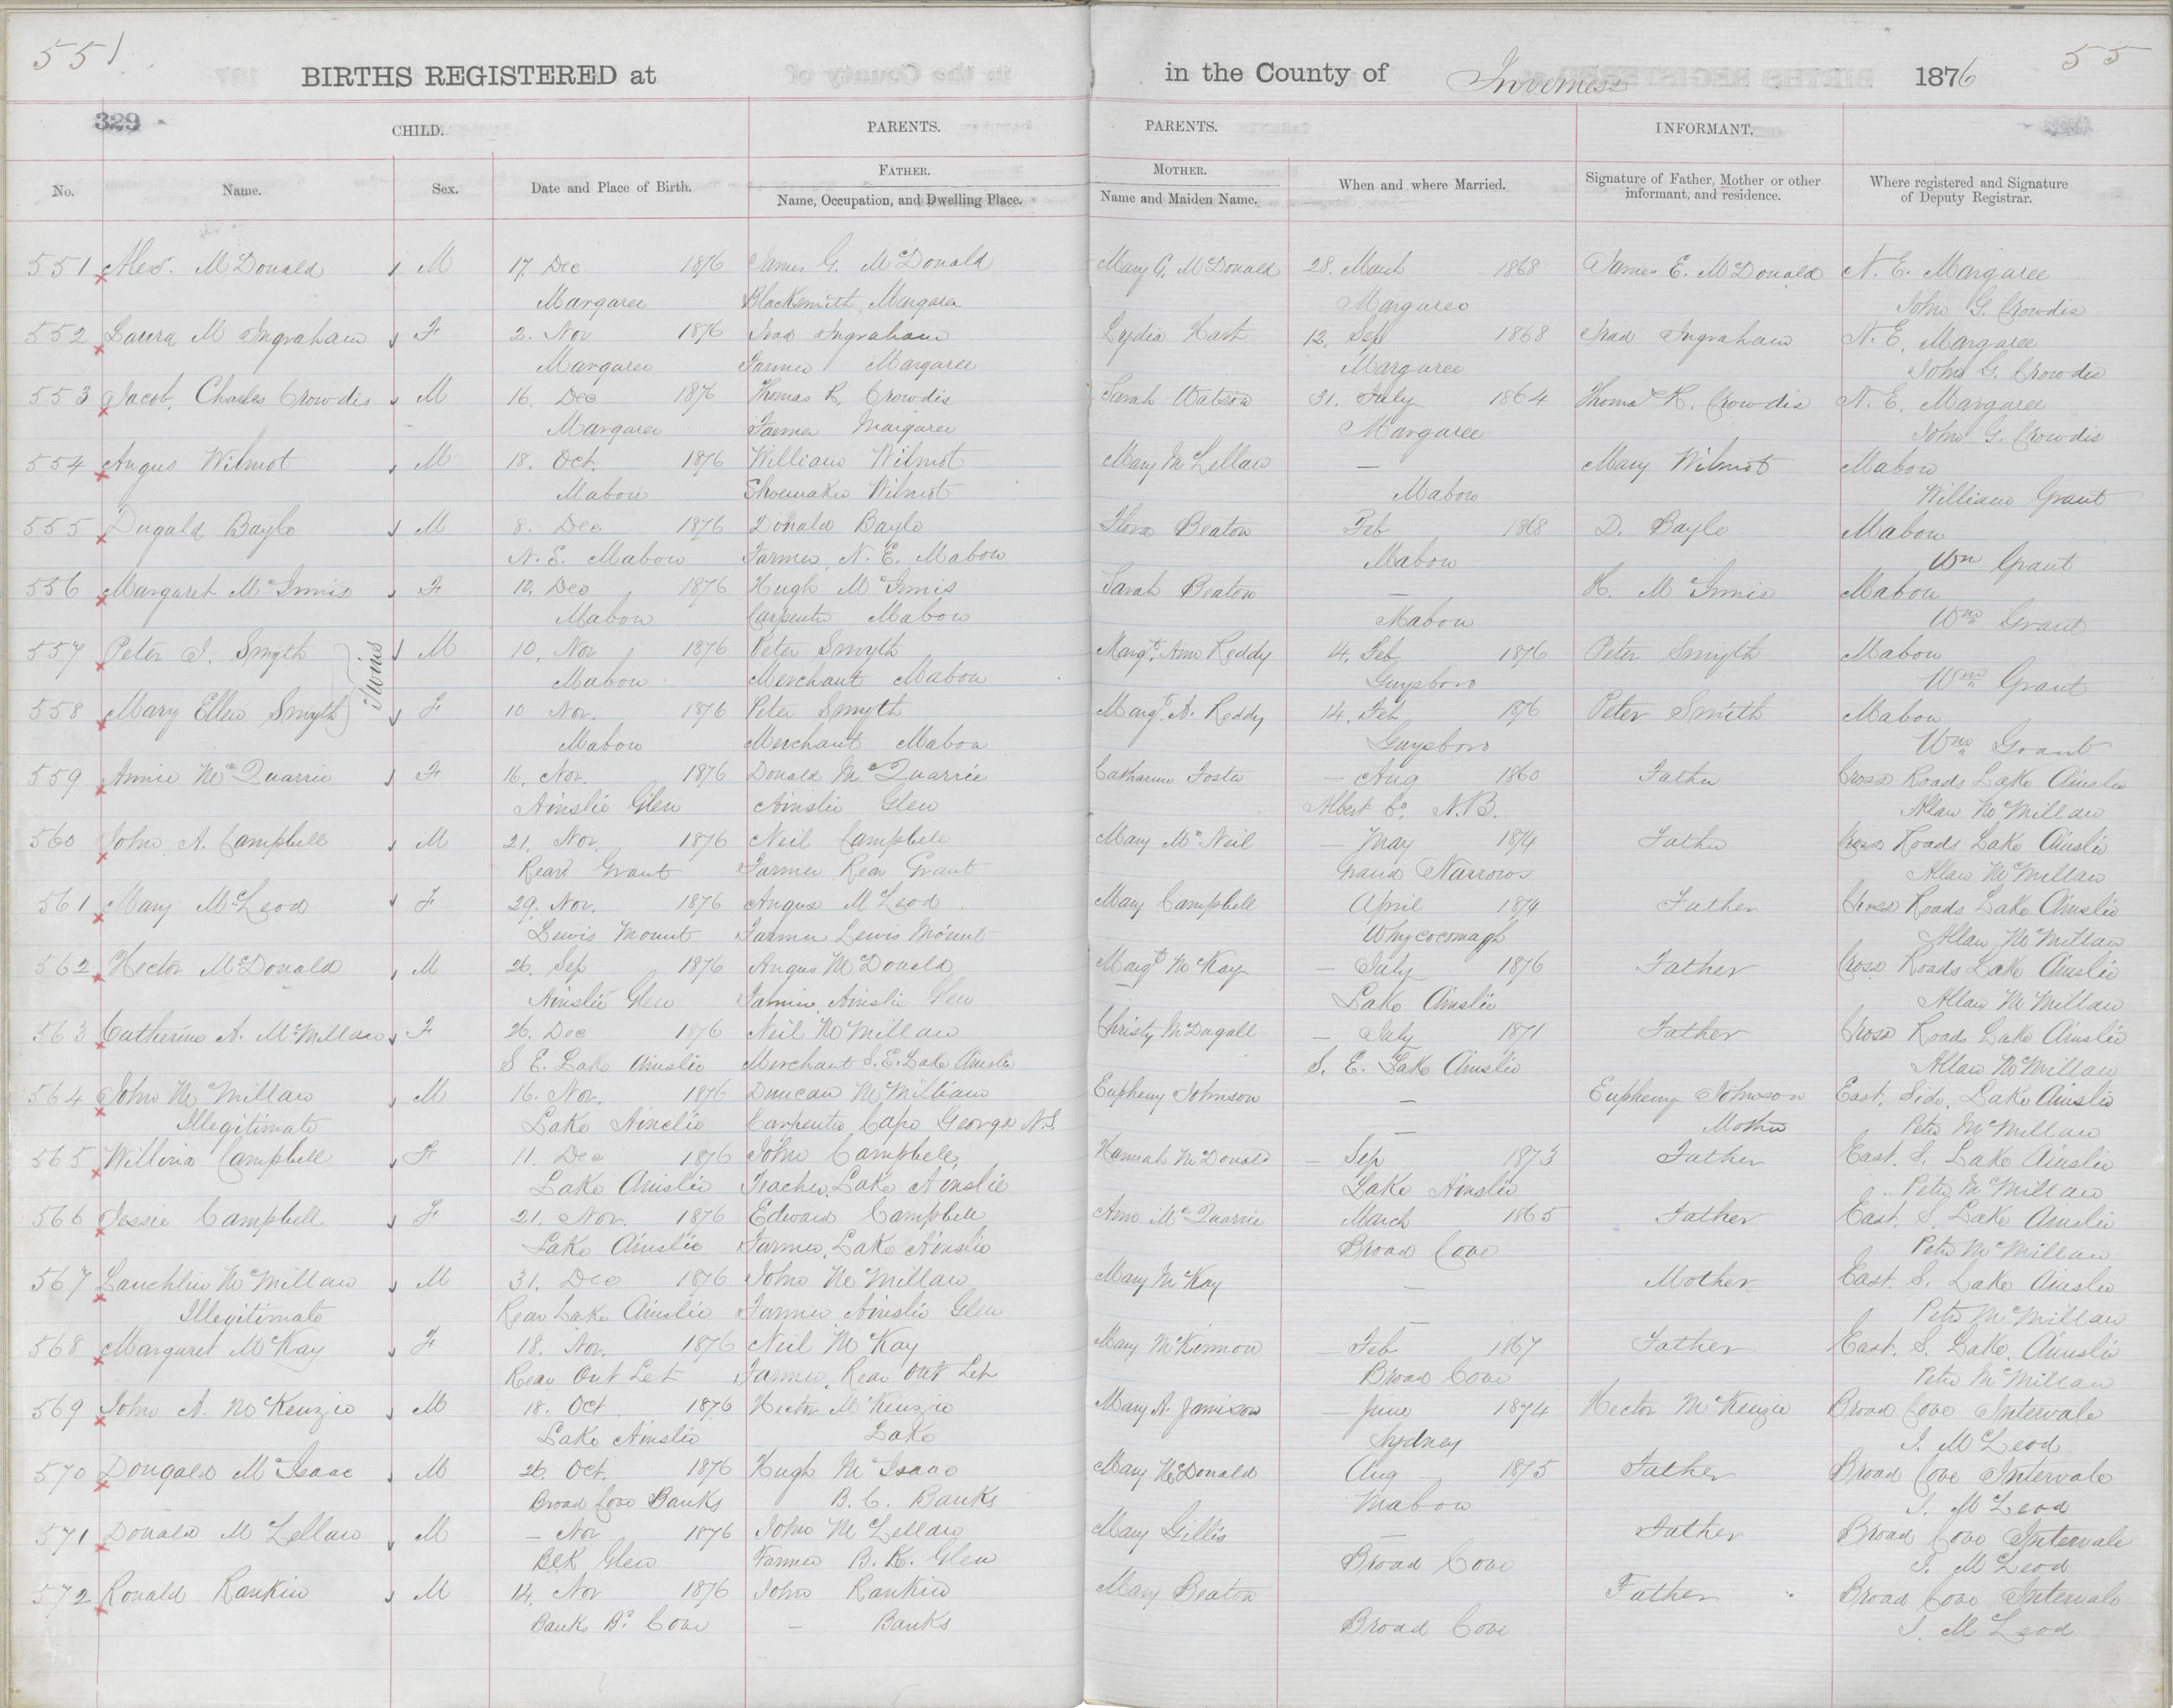 551 55
BIRTHS REGISTERED at in the County of Inverness 1876
329 CHILD. PARENTS. PARENTS. INFORMANT.
No. Name. Sex. Date and Place of Birth. FATHER. Name, Occupation, and Dwelling Place. MOTHER. Name and Maiden Name. When and where Married. Signature of Father, Mother or other informant, and residence. Where registered and Signature of Deputy Registrar.
551 Alexr. McDonald M 17. Dec 1876 James G. McDonald Mary G. McDonald 28. March 1868 James E. McDonald N. E. Margaree
Margaree Blacksmith Margaree Margaree John G. Crowdis
552 Laura M Ingraham F 2. Nov 1876 Irad Ingraham Lydia Hart 12. Sep 1868 Irad Ingraham N. E. Margaree
Margaree Farmer Margaree Margaree John G. Crowdis
553 Jacob. Charles Crowdis M 16. Dec 1876 Thomas R. Crowdis Sarah Watson 31. July 1864 Thomas R. Crowdis N. E. Margaree
Margaree Farmer Margaree Margaree John G. Crowdis
554 Angus Wilmot M 18. Oct. 1876 William Wilmot Mary McLellan — Mary Wilmot Mabou
Mabou Shoemaker Wilmot Mabou William Grant
555 Dugald Bayle M 8. Dec 1876 Donald Bayle Flora Beaton Feb 1868 D. Bayle Mabou
N. E. Mabou Farmer, N. E. Mabou Mabou Wm Grant
556 Margaret McInnis F 10. Dec 1876 Hugh McInnis Sarah Beaton — H. McInnis Mabou
Mabou Carpenter Mabou Mabou Wm Grant
557 Peter J. Smyth Twins M 10. Nov 1876 Peter Smyth Margt. Ann Reddy 14. Feb 1876 Peter Smyth Mabou
Mabou Merchant Mabou Guysboro Wm Grant
558 Mary Ellen Smyth F 10 Nov. 1876 Peter Smyth Margt. A. Reddy 14. Feb 1876 Peter Smith Mabou
Mabou Merchant Mabou Guysboro Wm Grant
559 Annie McQuarrie F 16. Nov. 1876 Donald McQuarrie Catharine Foster — Aug 1860 Father Cross Roads Lake Ainslie
Ainslie Glen Ainslie Glen Albert Co. N.B. Allan McMillan
560 John A. Campbell M 21. Nov. 1876 Neil Campbell Mary McNeil — May 1874 Father Cross Roads Lake Ainslie
Rear Grant Farmer Rear Grant Grand Narrows Allan McMillan
561 Mary McLeod F 29. Nov. 1876 Angus McLeod Mary Campbell April 1874 Father Cross Roads Lake Ainslie
Lewis Mount Farmer Lewis Mount Whycocomagh Allan McMillan
562 Hector McDonald M 26. Sep 1876 Angus McDonald Margt McKay — July 1876 Father Cross Roads Lake Ainslie
Ainslie Glen Farmer, Ainslie Glen Lake Ainslie Allan McMillan
563 Catherine A. McMillan F 26. Dec 1876 Neil McMillan Christy McDugall — July 1871 Father Cross Roads Lake Ainslie
S E. Lake Ainslie Merchant S. E. Lake Ainslie S. E. Lake Ainslie Allan McMillan
564 John McMillan M 16. Nov. 1876 Duncan McMillian Eupheny Johnson — Eupheny Johnson East. Side. Lake Ainslie
Illegitimate Lake Ainslie Carpenter Cape George N.S. — Mother Peter McMillan
565 Willina Campbell F 11. Dec 1876 John Campbell Hannah McDonald — Sep 1873 Father East. S. Lake Ainslie
Lake Ainslie Teacher, Lake Ainslie Lake Ainslie Peter McMillan
566 Jessie Campbell F 21. Nov. 1876 Edward Campbell Ann McQuarrie March 1865 Father East. S. Lake Ainslie
Lake Ainslie Farmer, Lake Ainslie Broad Cove Peter McMillan
567 Lauchlin McMillan M 31. Dec 1876 John McMillan Mary McKay — Mother East. S. Lake Ainslie
Illegitimate Rear Lake Ainslie Farmer Ainslie Glen — Peter McMillan
568 Margaret McKay F 18. Nov. 1876 Neil McKay Mary McKinnon — Feb 1867 Father East. S. Lake. Ainslie
Rear Out Let Farmer, Rear Out Let Broad Cove Peter McMillan
569 John A. McKenzie M 18. Oct 1876 Hector McKenzie Mary A. Jamison — June 1874 Hector McKenzie Broad Cove Intervale
Lake Ainslie Lake Sydney J. McLeod
570 Dougald McIsaac M 26. Oct. 1876 Hugh McIsaac Mary McDonald Aug 1875 Father Broad Cove Intervale
Broad Cove Banks B. C. Banks Mabou J. McLeod
571 Donald McLellan M — Nov 1876 John McLellan Mary Gillis — Father Broad Cove Intervale
BcK Glen Farmer B. K. Glen Broad Cove J. McLeod
572 Ronald Rankin M 14. Nov 1876 John Rankin Mary Beaton Father Broad Cove Intervale
Banks Bd. Cove — Banks Broad Cove J. McLeod